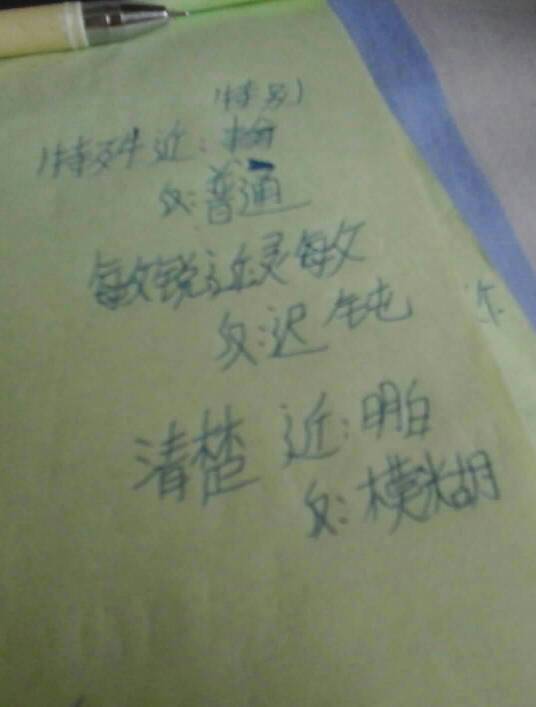 特别
特殊近:
反:普通
敏锐近灵敏
反:迟钝
清楚 近:明白
反:模糊